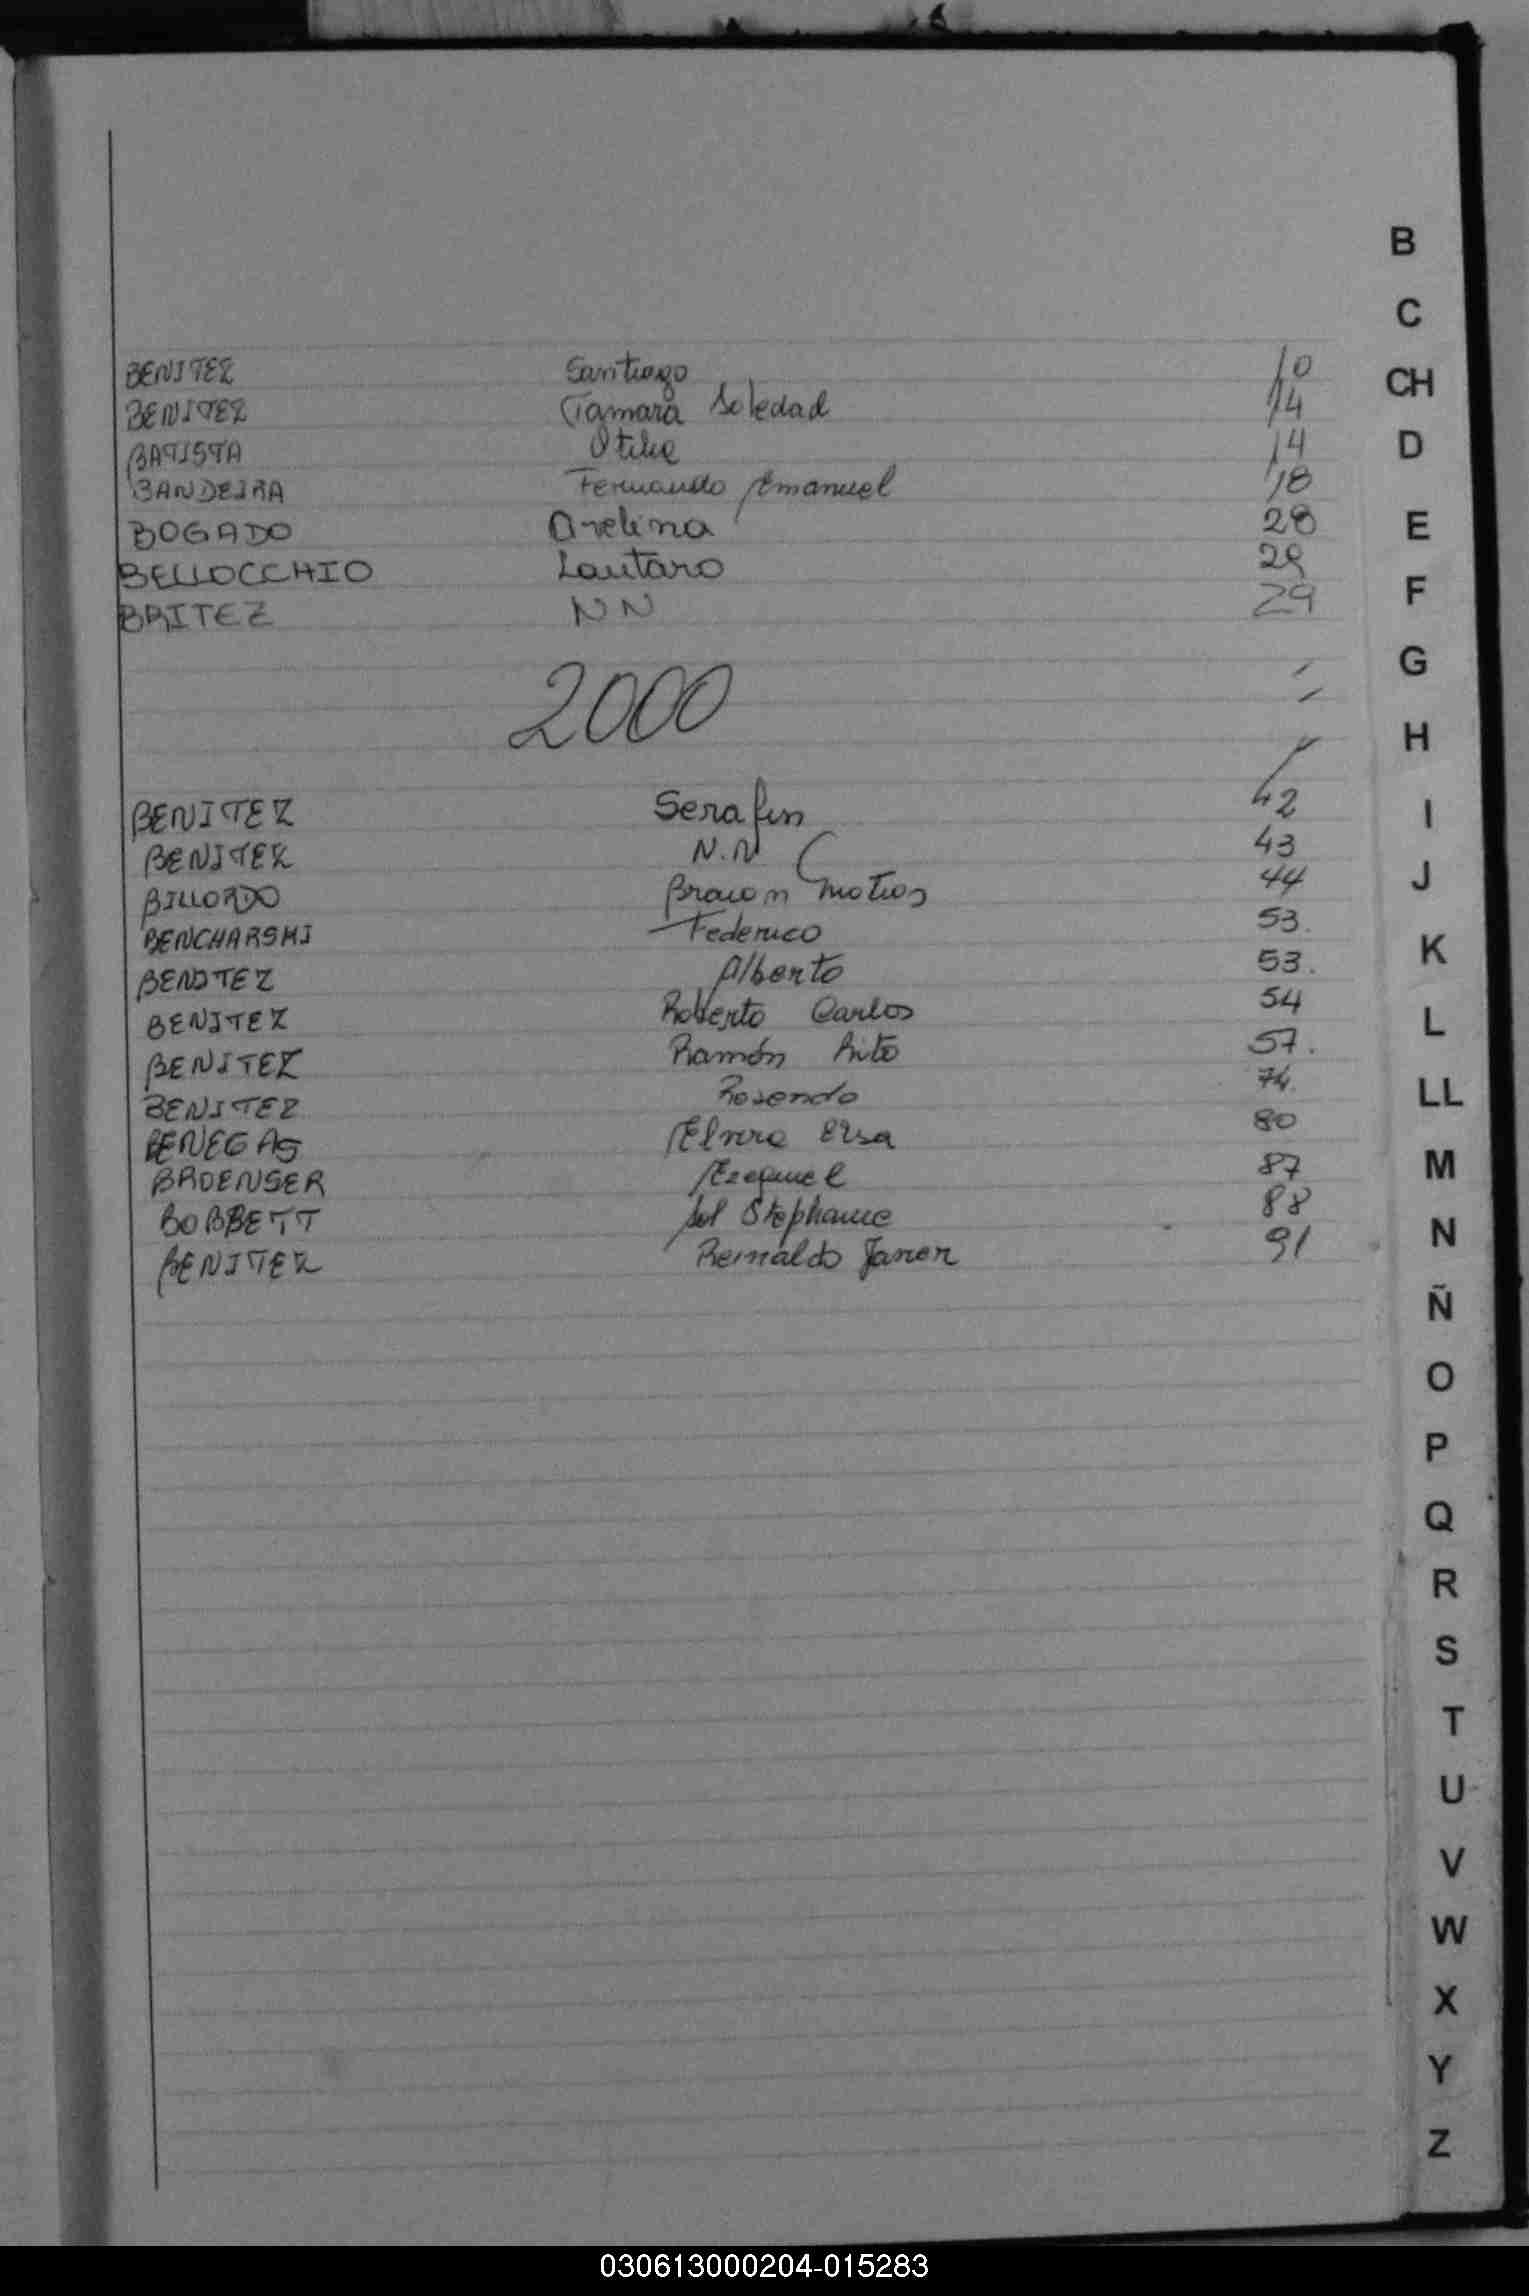 BENITEZ Santiago 10
BENITEZ Tamara Soledad 14
BATISTA Otilia 14
BANDEIRA Fernando Emanuel 18
BOGADO Avelina 28
BELLOCCHIO Lautaro 29
BRITEZ NN 29
2000
BENITEZ Serafin 42
BENITEZ N.N 43
BILLORDO Braion Matias 44
BENCHARSKI Federico 53.
BENITEZ Alberto 53.
BENITEZ Roberto Carlos 54
BENITEZ Ramón Rito 57.
BENITEZ Rosendo 74.
BENEGAS Elvira Elsa 80
BROENSER Ezequiel 87
BOBBETT Sol Stephanie 88
BENITEZ Reinaldo Javier 91
B
C
CH
D
E
F
G
H
I
J
K
L
LL
M
N
Ñ
O
P
Q
R
S
T
U
V
W
X
Y
Z
030613000204-015283